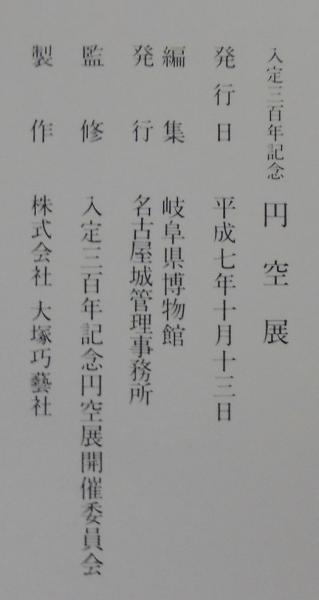 入定三百年記念 円空展
発行日 平成七年十月十三日
編集 岐阜県博物館
発行 名古屋城管理事務所
監修 入定三百年記念円空展開催委員会
製作 株式会社 大塚巧藝社